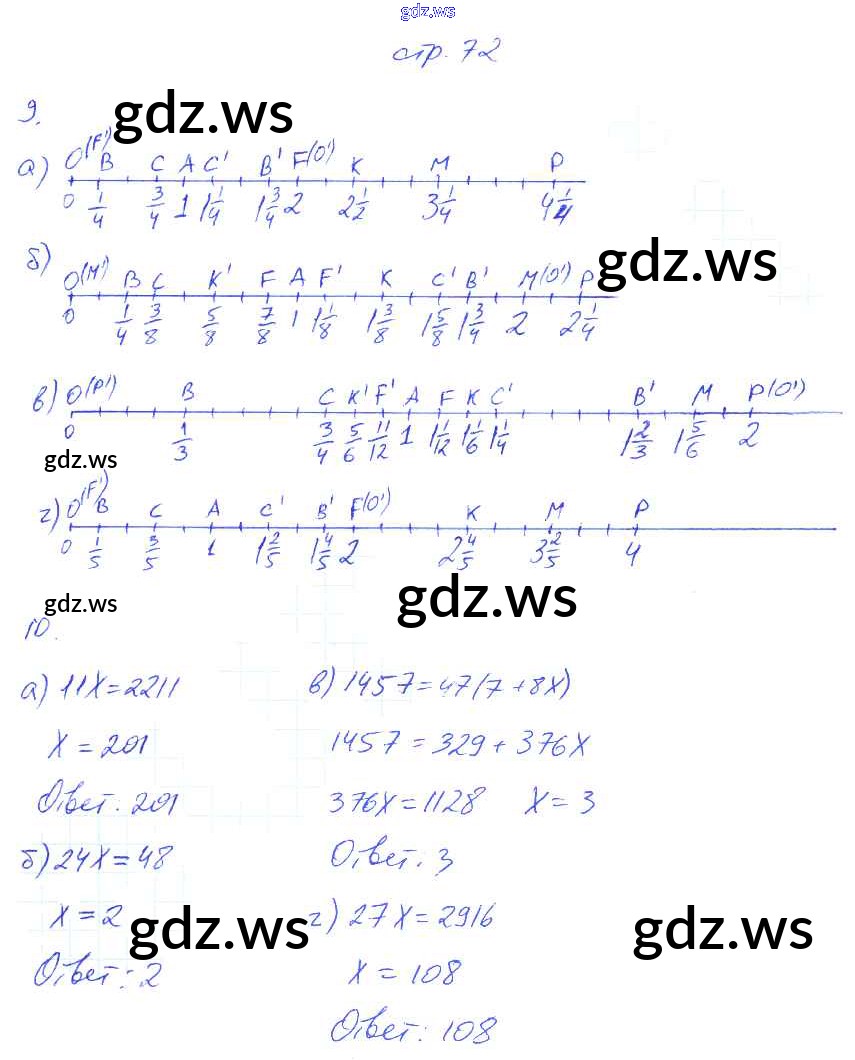 gdz.ws
стр. 72
9.
gdz.ws
а) O(F') B C A C' B' F(O') K M P
0 1/4 3/4 1 1 1/4 1 3/4 2 2 1/2 3 1/4 4 1/4
gdz.ws
б) O(M') B C K' F A F' K C' B' M(O') P
0 1/4 3/8 5/8 7/8 1 1 1/8 1 3/8 1 5/8 1 3/4 2 2 1/4
в) O(P') B C K' F' A F K C' B' M P(O')
0 1/3 3/4 5/6 11/12 1 1 1/12 1 1/6 1 1/4 1 2/3 1 5/6 2
gdz.ws
г) O(F') B C A C' B' F(O') K M P
0 1/5 3/5 1 1 2/5 1 4/5 2 2 4/5 3 2/5 4
gdz.ws
gdz.ws
10.
а) 11X=2211
X = 201
Ответ: 201
б) 24X=48
X = 2
Ответ: 2
в) 1457=47(7+8X)
1457=329+376X
376X=1128 X=3
Ответ: 3
г) 27X=2916
X = 108
Ответ: 108
gdz.ws
gdz.ws